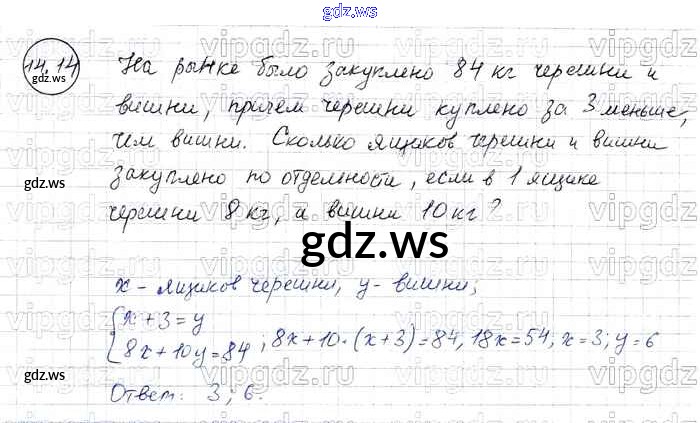 gdz.ws
14,14
gdz.ws
На рынке было закуплено 84 кг черешни и
вишни, причём черешни куплено за 3 меньше,
чем вишни. Сколько ящиков черешни и вишни
закуплено по отдельности, если в 1 ящике
черешни 8 кг, а вишни 10 кг?
gdz.ws
gdz.ws
x - ящиков черешни, y - вишни;
{x + 3 = y
{8x + 10y = 84 ; 8x + 10 · (x + 3) = 84, 18x = 54, x = 3; y = 6
gdz.ws
Ответ: 3; 6.
gdz.ws
vipgdz.ru